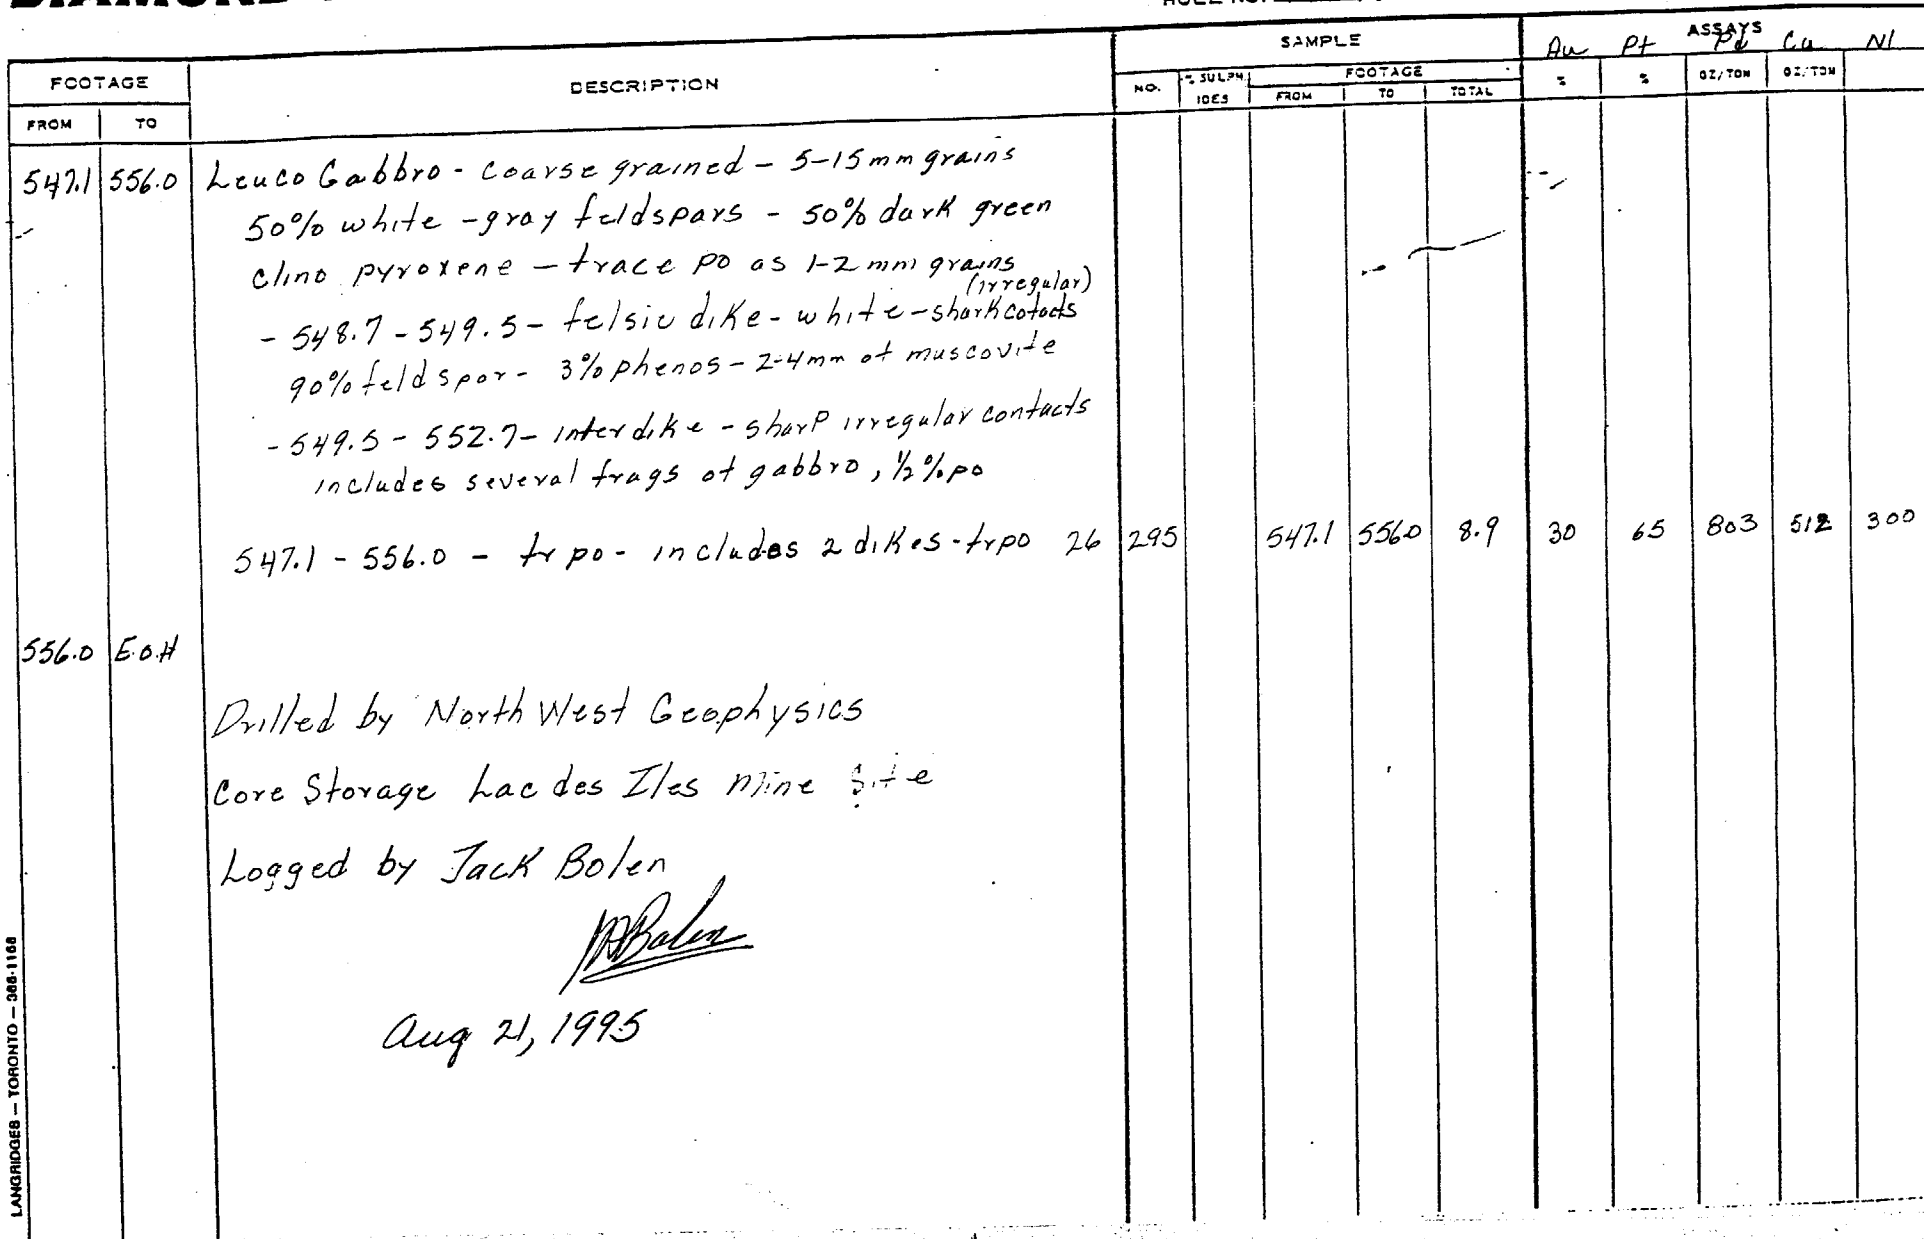 FOOTAGE
FROM TO
DESCRIPTION
SAMPLE
NO. % SULPH IDES
FOOTAGE
FROM TO TOTAL
ASSAYS
Au Pt Pd Cu Ni
% % OZ/TON OZ/TON
547.1 556.0 Leuco Gabbro - coarse grained - 5-15mm grains
50% white - gray feldspars - 50% dark green
clino pyroxene - trace po as 1-2 mm grains
(irregular)
- 548.7 - 549.5 - felsic dike - white - shark cotacts
90% feldspar - 3% phenos - 2-4mm of muscovite
- 549.5 - 552.7 - inter dike - sharp irregular contacts
includes several frags of gabbro, 1/2% po
547.1 - 556.0 - tr po - includes 2 dikes - tr po 26 295 547.1 556.0 8.9 30 65 803 512 300
556.0 E.O.H
Drilled by North West Geophysics
Core Storage Lac des Iles Mine Site
Logged by Jack Bolen
Bolen
Aug 21, 1995
LANGRIDGES – TORONTO – 366-1168